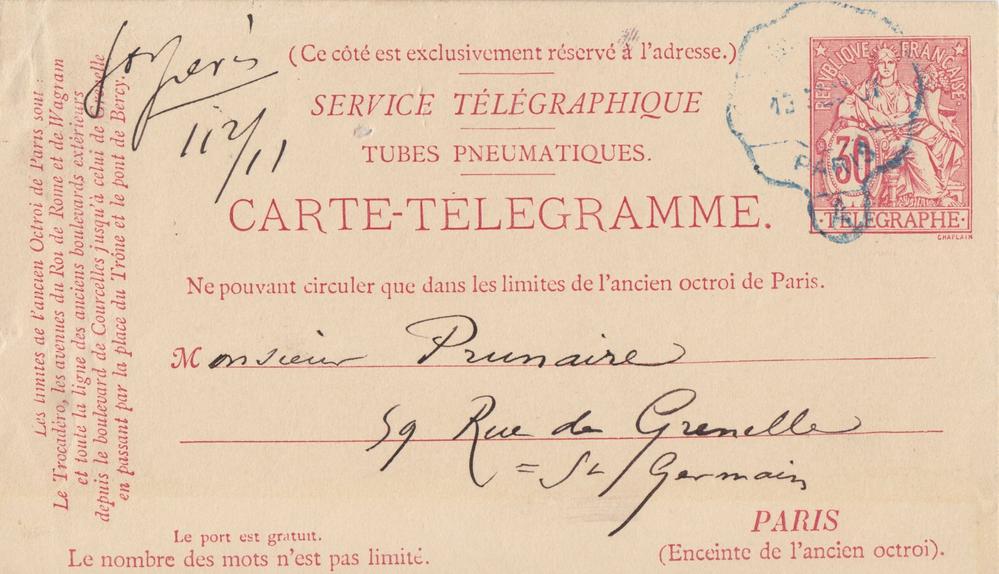 Les limites de l'ancien Octroi de Paris sont :
Le Trocadéro, les avenues du Roi de Rome et de Wagram
et toute la ligne des anciens boulevards extérieurs
depuis le boulevard de Courcelles jusqu'à celui de Grenelle
en passant par la place du Trône et le pont de Bercy.
112/11
(Ce côté est exclusivement réservé à l'adresse.)
SERVICE TÉLÉGRAPHIQUE
TUBES PNEUMATIQUES.
CARTE-TÉLÉGRAMME.
RÉPUBLIQUE FRANÇAISE
30
TÉLÉGRAPHE
CHAPLAIN
PARIS
Ne pouvant circuler que dans les limites de l'ancien octroi de Paris.
Monsieur Prunaire
59 Rue de Grenelle
= St Germain
PARIS
(Enceinte de l'ancien octroi).
Le port est gratuit.
Le nombre des mots n'est pas limité.